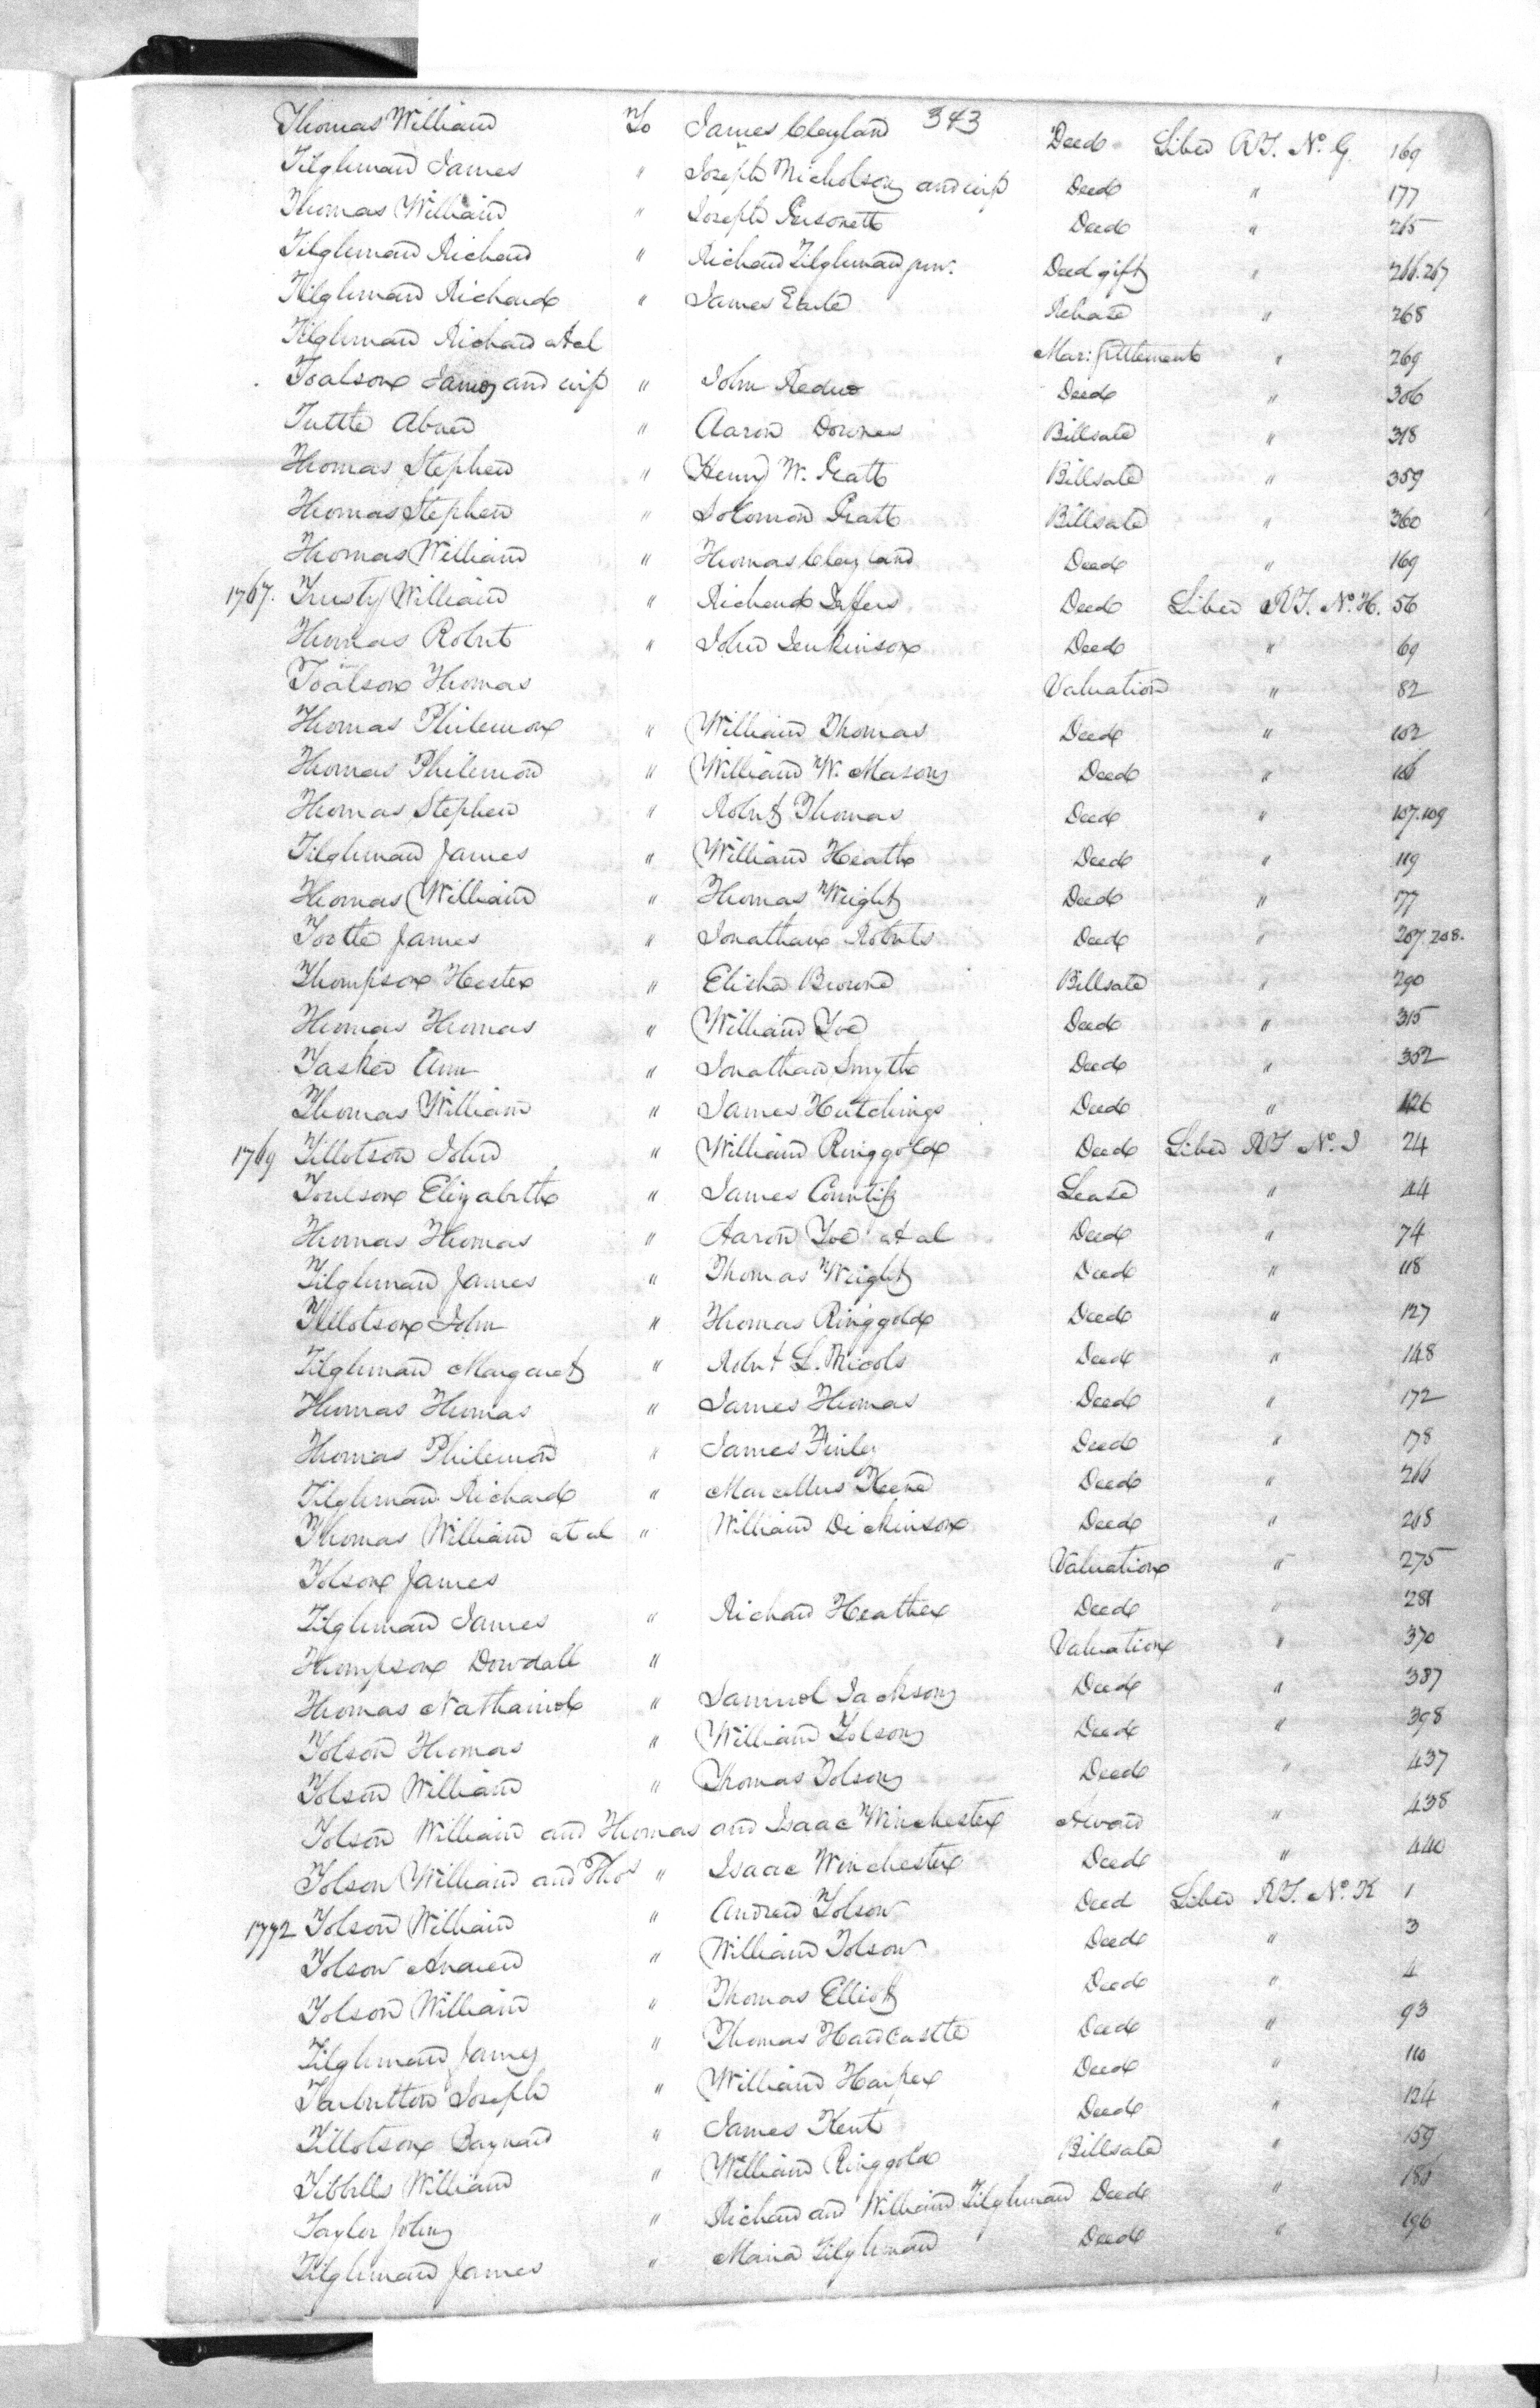 343
Thomas William To James Clayland Deed Liber RT. No. G. 169
Tilghman James " Joseph Nicholson and wife Deed " 177
Thomas William " Joseph Deed " 265
Tilghman Richard " Richard Tilghman junr. Deed gift " 266.267
Tilghman Richard " James Earle Release " 268
Tilghman Richard et al Mar: Settlement " 269
Toalson James and wife " John Deed " 306
Tuttle Abner " Aaron Downes Billsale " 318
Thomas Stephen " Henry W. Pratt Billsale " 359
Thomas Stephen " Solomon Pratt Billsale " 360
Thomas William " Thomas Clayland Deed " 169
1767. Trusty William " Richard Deed Liber RT. No. H. 56
Thomas Robert " John Jenkinson Deed " 69
Toalson Thomas Valuation " 82
Thomas Philemon " William Thomas Deed " 102
Thomas Philemon " William W. Mason Deed " 106
Thomas Stephen " Robert Thomas Deed " 107.109
Tilghman James " William Heath Deed " 119
Thomas William " Thomas Wright Deed " 177
Tootle James " Jonathan Roberts Deed " 207.208.
Thompson Hester " Elisha Browne Billsale " 290
Thomas Thomas " William Yoe Deed " 315
Tasker Ann " Jonathan Smyth Deed " 352
Thomas William " James Hutchings Deed " 426
1769 Tillotson John " William Ringgold Deed Liber RT No. I 24
Toulson Elizabeth " James Countiss Lease " 44
Thomas Thomas " Aaron Yoe et al Deed " 74
Tilghman James " Thomas Wright Deed " 118
Tillotson John " Thomas Ringgold Deed " 127
Tilghman Margaret " Robt L. Nicols Deed " 148
Thomas Thomas " James Thomas Deed " 172
Thomas Philemon " James Finley Deed " 178
Tilghman Richard " Marcellus Keene Deed " 266
Thomas William et al " William Dickinson Deed " 268
Tolson James Valuation " 275
Tilghman James " Richard Heather Deed " 281
Thompson Dowdall " Valuation " 370
Thomas Nathaniel " Samuel Jackson Deed " 387
Tolson Thomas " William Tolson Deed " 398
Tolson William " Thomas Tolson Deed " 437
Tolson William and Thomas and Isaac Winchester Award " 438
Tolson William and Thos " Isaac Winchester Deed " 440
1772 Tolson William " Andrew Tolson Deed Liber RT. No. K 1
Tolson Andrew " William Tolson Deed " 3
Tolson William " Thomas Elliott Deed " 4
Tilghman James " Thomas Hardcastle Deed " 93
Tarbutton Joseph " William Harper Deed " 110
Tillotson Baynard " James Kent Deed " 124
Tibbells William " William Ringgold Billsale " 159
Taylor John " Richard and William Tilghman Deed " 186
Tilghman James " Maria Tilghman Deed " 196